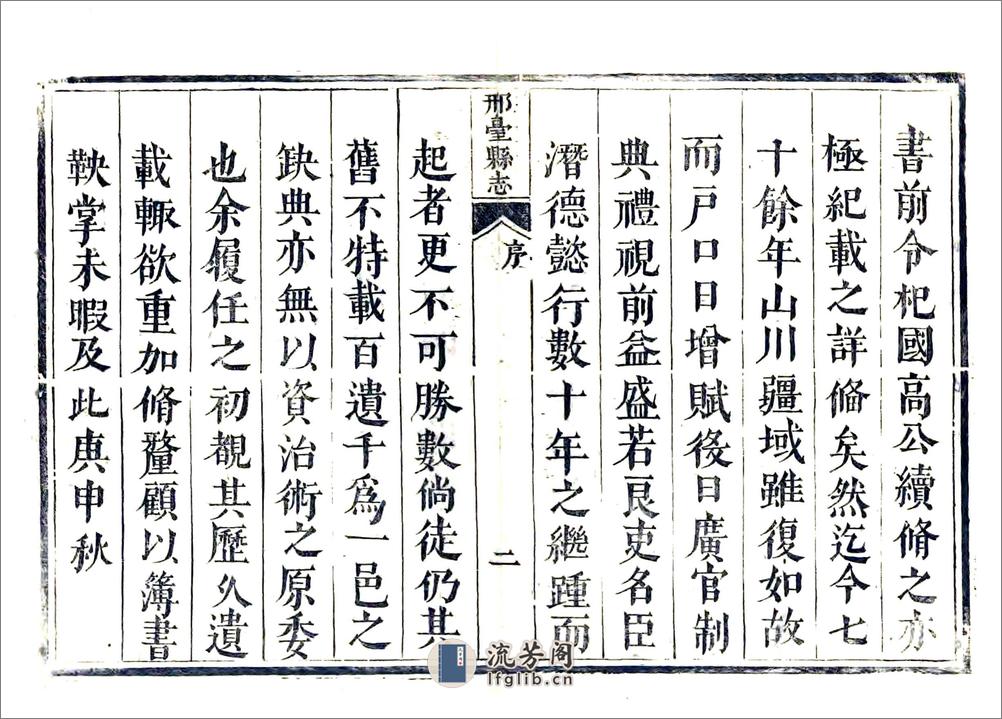 書前令杞國高公續脩之亦
極紀載之詳僃矣然迄今七
十餘年山川疆域雖復如故
而戸口日增賦後日廣官制
典禮視前益盛若良吏名臣
潛德懿行數十年之繼踵而
邢臺縣志
序
二
起者更不可勝數倘徒仍其
舊不特載百遺千爲一邑之
缺典亦無以資治術之原委
也余履任之初覩其歷久遺
載輙欲重加脩釐顧以簿書
鞅掌未暇及此庚申秋
流芳阁
lfglib.cn